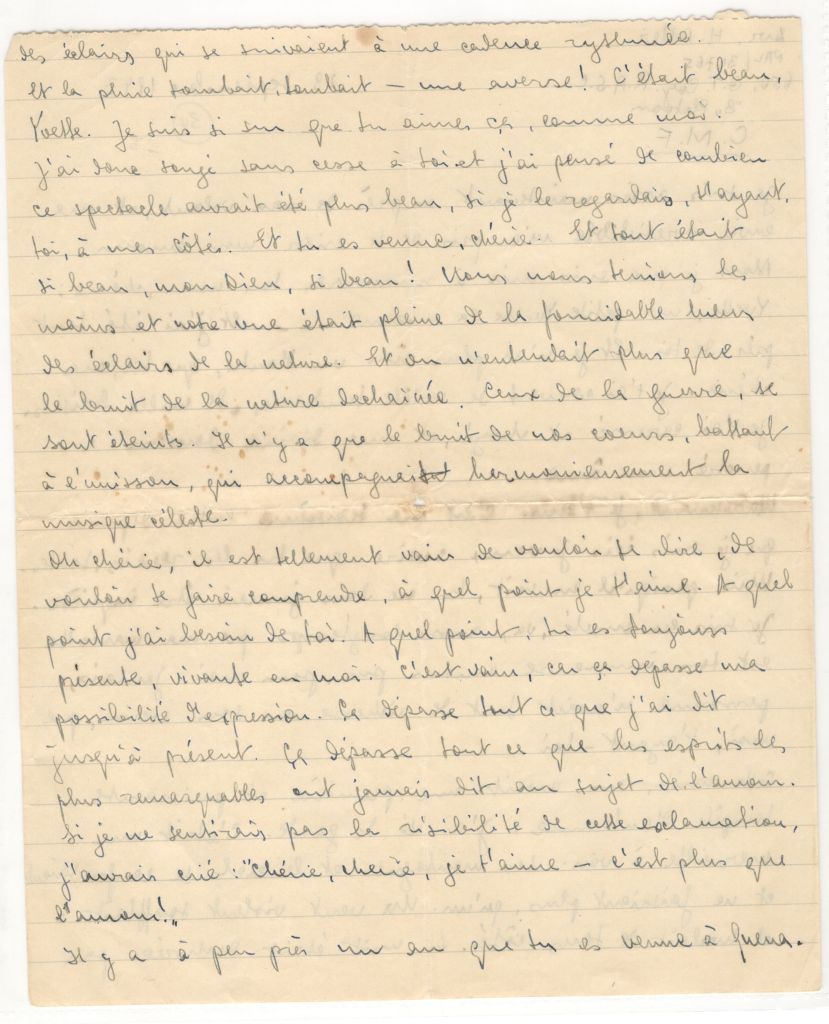 des éclairs qui se suivaient à une cadence rythmée.
Et la pluie tombait, tombait — une averse! C'était beau,
Yvette. Je suis si sur que tu aimes ça, comme moi.
J'ai donc songé sans cesse à toi et j'ai pensé de combien
ce spectacle aurait été plus beau, si je le regardais, t'ayant,
toi, à mes côtés. Et tu es venue, chérie. Et tout était
si beau, mon Dieu, si beau! Nous nous tenions les
mains et notre vue était pleine de la formidable lueur
des éclairs de la nature. Et on n'entendait plus que
le bruit de la nature dechaînée. Ceux de la guerre, se
sont éteints. Il n'y a que le bruit de nos coeurs, battant
à l'unisson, qui accompagnei hermonieusement la
musique céleste.
Oh chérie, il est tellement vain de vouloir te dire, de
vouloir te faire comprendre, à quel point je t'aime. A quel
point j'ai besoin de toi. A quel point, tu es toujours
présente, vivante en moi. C'est vain, car ça dépasse ma
possibilité d'expression. Ça dépasse tout ce que j'ai dit
jusqu'à présent. Ça dépasse tout ce que les esprits les
plus remarquables ont jamais dit au sujet de l'amour.
Si je ne sentirais pas la risibilité de cette exclamation,
j'aurais crié : "Chérie, cherie, je t'aime — c'est plus que
l'amour!"
Il y a à peu près un an que tu es venue à